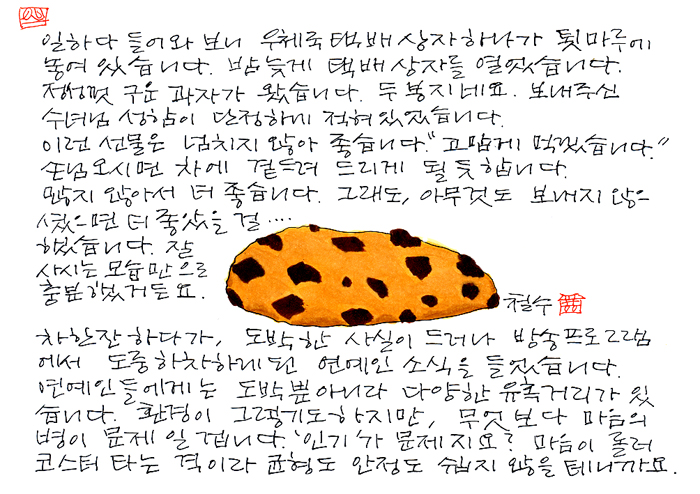 일하다 들어와 보니 우체국 택배 상자하나가 툇마루에
놓여 있습니다. 밤늦게 택배상자를 열었습니다.
정성껏 구운 과자가 왔습니다. 두 봉지네요. 보내주신
수녀님 성함이 단정하게 적혀있었습니다.
이런 선물은 넘치지 않아 좋습니다. "고맙게 먹겠습니다."
손님오시면 차에 곁드려 드리게 될 듯합니다.
많지 않아서 더 좋습니다. 그래도, 아무것도 보내지 않으
셨으면 더 좋았을 걸 ....
했습니다. 잘
사시는 모습만으로
충분했거든요.
철수
차한잔하다가, 도박한 사실이 드러나 방송프로그램
에서 도중하차하게된 연예인 소식을 들었습니다.
연예인들에게는 도박뿐아니라 다양한 유혹거리가 있
습니다. 환경이 그렇기도하지만, 무엇보다 마음의
병이 문제일겁니다. '인기'가 문제지요? 마음이 롤러
코스터 타는 격이라 균형도 안정도 쉽지 않을테니까요.